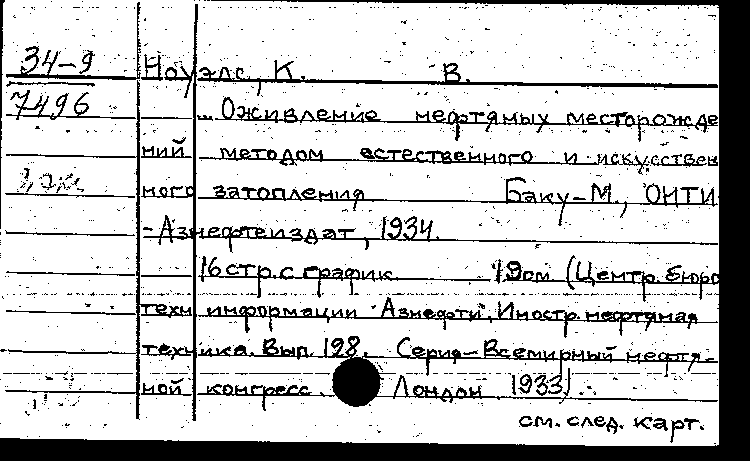 34-9
7496
Ноуэлс, К. В.
... Оживление нефтяных месторожде
ний методом естественного и искусствен
ного затопления Баку-М., ОНТИ
-Азнефтеиздат, 1934.
16 стр. с график. 19 см (Центр. бюро
техн информации "Азнефти", Иностр. нефтяная
техника. Вып. 198. Серия-Всемирный нефтя-
ной конгресс. Лондон 1933).
см. след. карт.